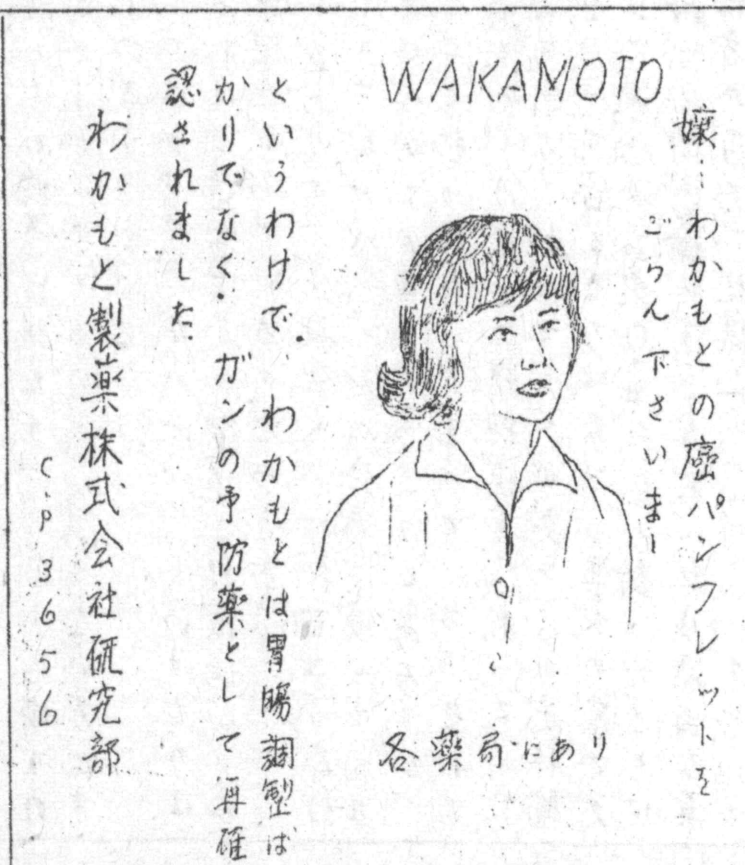 WAKAMOTO
嬢…わかもとの癌パンフレットを
ごらん下さいまし
各薬局にあり
というわけで、わかもとは胃腸調整ば
かりでなく、ガンの予防薬として再確
認されました、
わかもと製薬株式会社研究部
C.P.3656